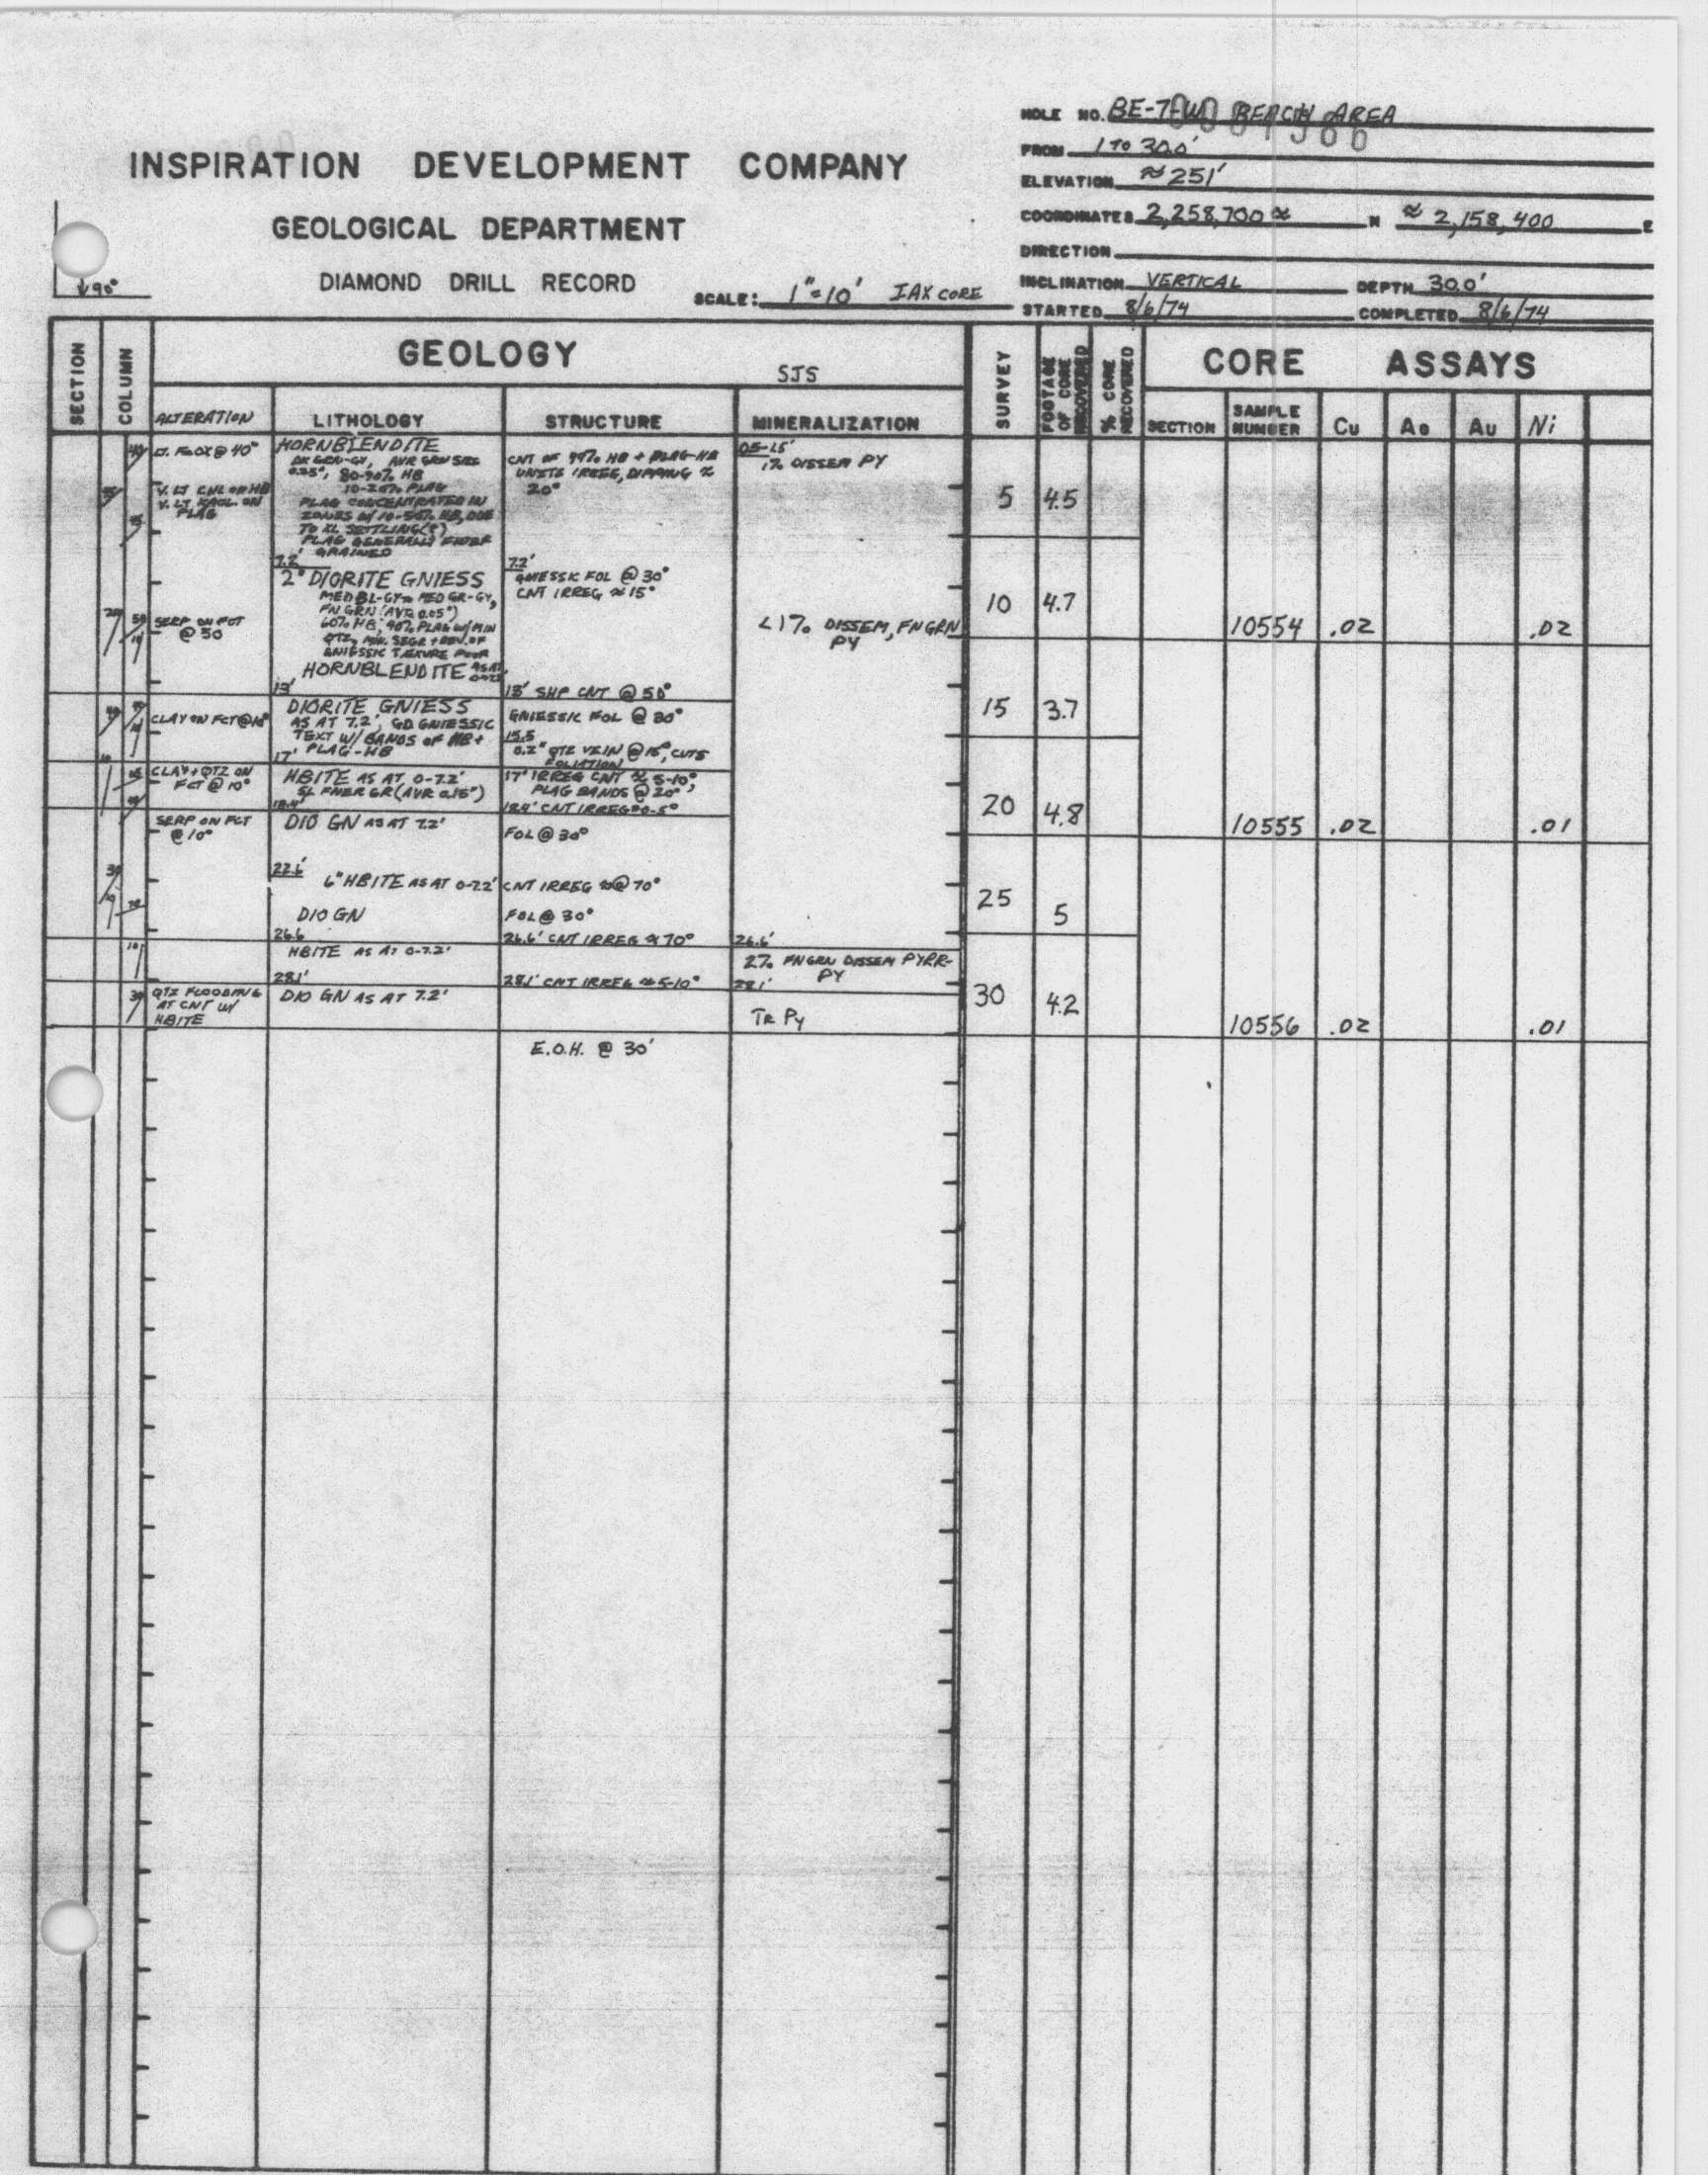 HOLE NO. BE-7-W BEACH AREA
FROM 1 TO 30.0'
INSPIRATION DEVELOPMENT COMPANY
ELEVATION ≈ 251'
COORDINATES 2,258,700 ≈ N ≈ 2,158,400 E
GEOLOGICAL DEPARTMENT
DIRECTION
↓90°
DIAMOND DRILL RECORD
SCALE: 1"=10' IAX CORE
INCLINATION VERTICAL DEPTH 30.0'
STARTED 8/6/74 COMPLETED 8/6/74
SECTION
COLUMN
GEOLOGY
SJS
SURVEY
FOOTAGE OF CORE RECOVERED
% CORE RECOVERED
CORE ASSAYS
ALTERATION LITHOLOGY STRUCTURE MINERALIZATION
SECTION SAMPLE NUMBER Cu Au Ni
@ 40°
V. LT ON HB
V. LT KAOL ON
PLAG
SERP ON FCT
@ 50
CLAY ON FCT @ 10°
CLAY + QTZ ON
FCT @ 10°
SERP ON FCT
@ 10°
QTZ FLOODING
AT CNT W/
HBITE
HORNBLENDITE
DK GRN-GY, AVR GRN SZE
0.25", 80-90% HB
10-20% PLAG
PLAG CONCENTRATED IN
ZONES W/ 10-50% HB, DUE
TO XL SETTLING(?)
PLAG GENERALLY FINER
GRAINED
7.2'
2" DIORITE GNIESS
MED BL-GY ≈ MED GR-GY,
FN GRN (AVR 0.05")
60% HB, 40% PLAG W/ MIN
QTZ, MIN. SEGR + DEV. OF
GNIESSIC TEXTURE POOR
HORNBLENDITE AS AT
13'
DIORITE GNIESS
AS AT 7.2', GD GNIESSIC
TEXT W/ BANDS OF HB +
17' PLAG-HB
HBITE AS AT 0-7.2'
SL FNER GR (AVR 0.15")
18.4'
DIO GN AS AT 7.2'
22.6'
6" HBITE AS AT 0-7.2'
DIO GN
26.6
HBITE AS AT 0-7.2'
28.1'
DIO GN AS AT 7.2'
CNT OF 90% HB + PLAG-HB
UNITS IRREG, DIPPING ≈
20°
7.2'
GNIESSIC FOL @ 30°
CNT IRREG ≈ 15°
13' SHP CNT @ 50°
GNIESSIC FOL @ 30°
15.5
0.2" QTZ VEIN @ 15°, CUTS
FOLIATION
17' IRREG CNT ≈ 5-10°,
PLAG BANDS @ 20°
18.4' CNT IRREG ≈ 0-5°
FOL @ 30°
CNT IRREG ≈ @ 70°
FOL @ 30°
26.6' CNT IRREG ≈ 70°
28.1' CNT IRREG ≈ 5-10°
E.O.H. @ 30'
1% DISSEM PY
<1% DISSEM, FN GRN
PY
26.6'
2% FN GRN DISSEM PYRR-
PY
28.1'
TR PY
5 4.5
10 4.7
10554 .02 .02
15 3.7
20 4.8
10555 .02 .01
25 5
30 4.2
10556 .02 .01